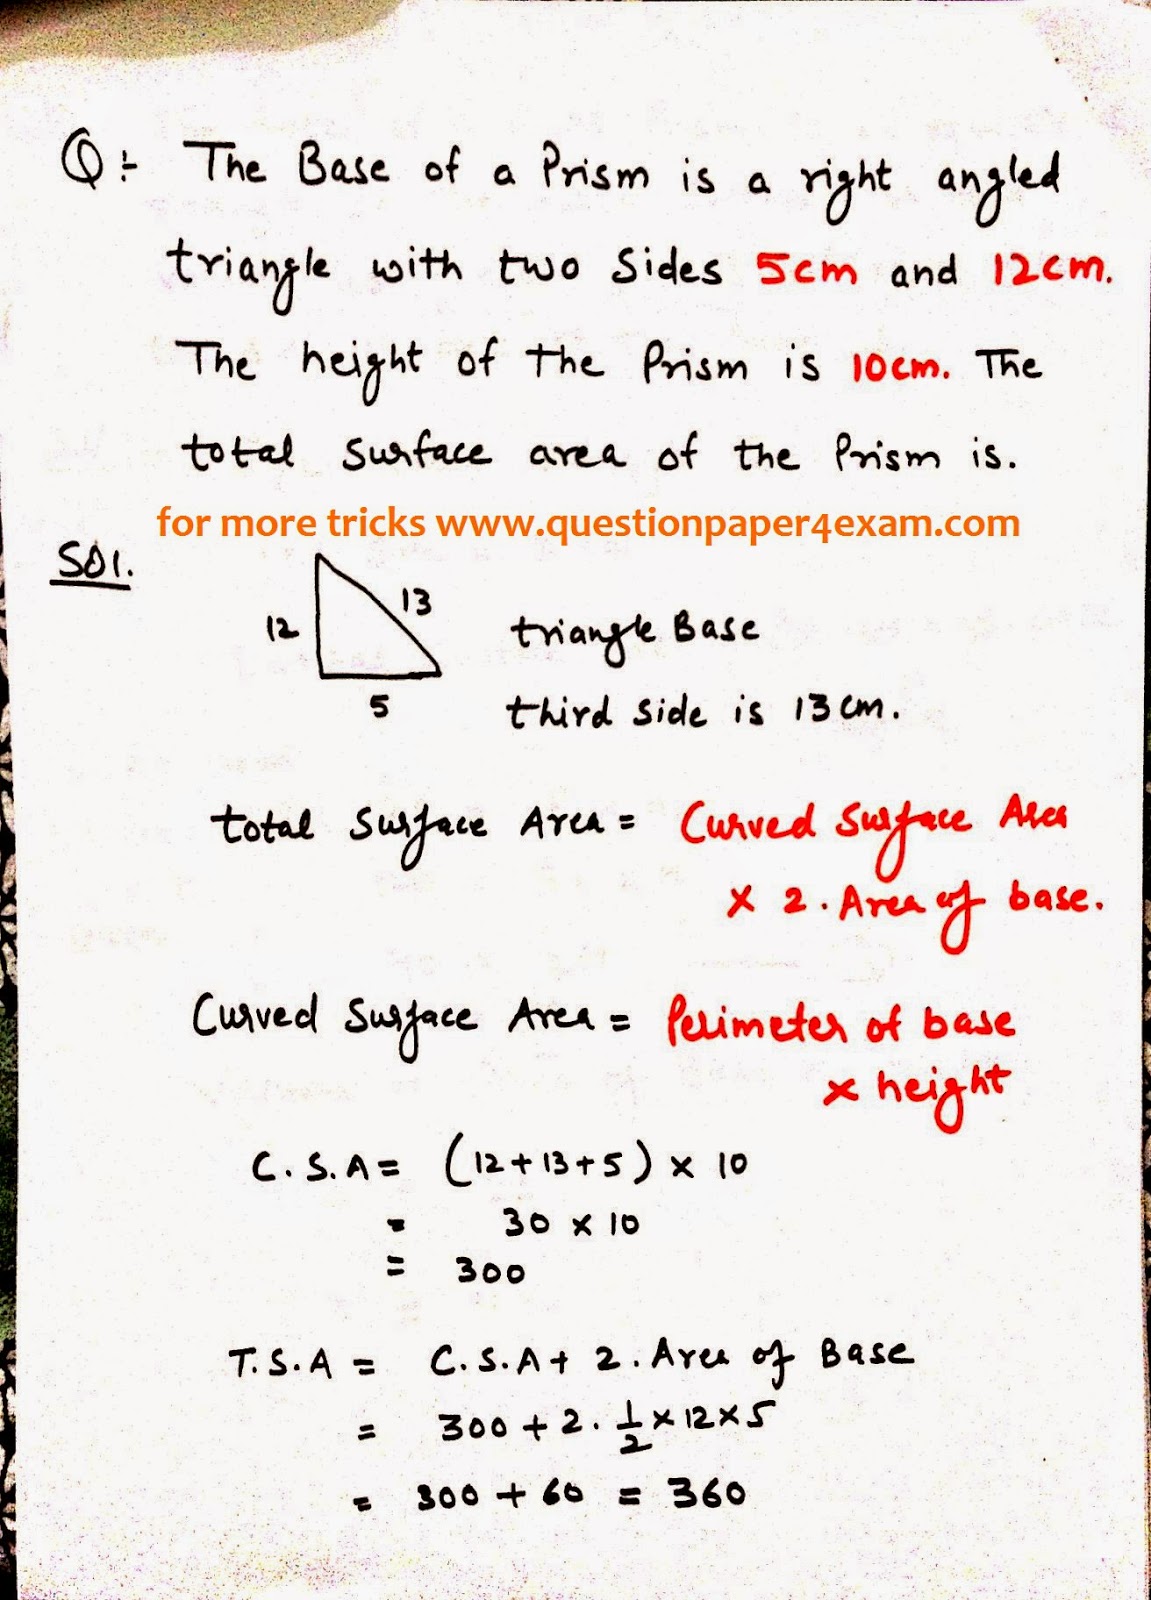 Q:- The Base of a Prism is a right angled
triangle with two Sides 5cm and 12cm.
The height of the Prism is 10cm. The
total Surface area of the Prism is.
for more tricks www.questionpaper4exam.com
Sol.
12
13
5
triangle Base
third side is 13 cm.
total Surface Area = Curved Surface Area
x 2. Area of base.
Curved Surface Area = Perimeter of base
x height
C.S.A = (12+13+5) x 10
= 30 x 10
= 300
T.S.A = C.S.A + 2. Area of Base
= 300 + 2. 1/2 x 12 x 5
= 300 + 60 = 360